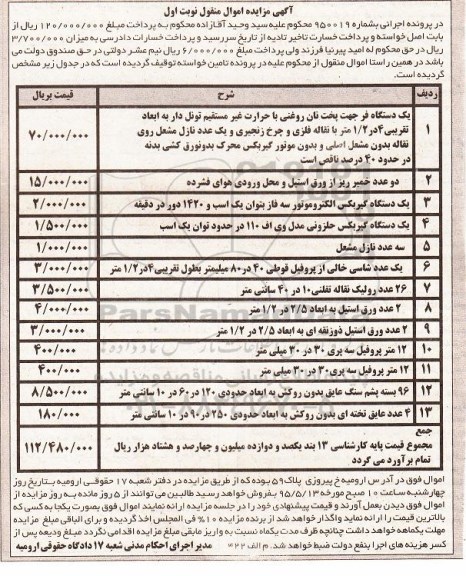 آگهی مزایده اموال منقول نوبت اول
در پرونده اجرائی بشماره ۹۵۰۰۱۹ محکوم علیه سید وحید آقازاده محکوم به پرداخت مبلغ ۱۲۰/۰۰۰/۰۰۰ ریال از
بابت اصل خواسته و پرداخت خسارت تاخیر تادیه از تاریخ سررسید و پرداخت خسارات دادرسی به میزان ۳/۷۰۰/۰۰۰
ریال در حق محکوم له امید پیرنیا فرزند ولی پرداخت مبلغ ۶/۰۰۰/۰۰۰ ریال نیم عشر دولتی در حق صندوق دولت می
باشد در همین راستا اموال منقول از محکوم علیه در پرونده تامین خواسته توقیف گردیده است که در جدول زیر مشخص
گردیده است
ردیف شرح قیمت بریال
۱ یک دستگاه فر جهت پخت نان روغنی با حرارت غیر مستقیم تونل دار به ابعاد
تقریبی ۴در۱/۲ متر با نقاله فلزی و چرخ زنجیری و یک عدد نازل مشعل روی
نقاله بدون مشعل اصلی و بدون موتور گیربکس محرک بدونورق کشی بدنه
در حدود ۴۰ درصد ناقص است ۷۰/۰۰۰/۰۰۰
۲ دو عدد خمیر ریز از ورق استیل و محل ورودی هوای فشرده ۱۵/۰۰۰/۰۰۰
۳ یک دستگاه گیربکس الکتروموتور سه فاز بتوان یک اسب و ۱۴۲۰ دور در دقیقه ۲/۰۰۰/۰۰۰
۴ یک دستگاه گیربکس حلزونی مدل وی اف ۱۱۰ در حدود توان یک اسب ۱/۵۰۰/۰۰۰
۵ سه عدد نازل مشعل ۱/۰۰۰/۰۰۰
۶ یک عدد شاسی خالی از پروفیل قوطی ۴۰ در۸۰ میلیمتر بطول تقریبی۴در۱/۲ متر ۳/۰۰۰/۰۰۰
۷ ۲۶ عدد رولیک نقاله تفلنی۱۰ در ۴۰ سانتی متر ۳/۵۰۰/۰۰۰
۸ ۲ عدد ورق استیل به ابعاد ۲/۵ در ۱/۲ متر ۴/۰۰۰/۰۰۰
۹ ۲ عدد ورق استیل ذوزنقه ای به ابعاد ۲/۵ در ۱/۲ متر ۳/۰۰۰/۰۰۰
۱۰ ۱۲ متر پروفیل سه پری ۳۰ در ۳۰ میلی متر ۴۰۰/۰۰۰
۱۱ ۱۲ متر پروفیل سه پری۳۰ در ۳۰ میلی متر ۴۰۰/۰۰۰
۱۲ ۹۶ بسته پشم سنگ عایق بدون روکش به ابعاد حدودی ۱۲۰در ۶۰ در ۱۰ سانتی متر ۸/۵۰۰/۰۰۰
۱۳ ۴ عدد عایق تخته ای بدون روکش به ابعاد حدودی ۲۵۰ در ۹۰ در ۱۰ سانتی متر ۱۸۰/۰۰۰
جمع
مجموع قیمت پایه کارشناسی ۱۳ بند یکصد و دوازده میلیون و چهارصد و هشتاد هزار ریال
تمام برآورد می گردد ۱۱۲/۴۸۰/۰۰۰
اموال فوق در آدرس ارومیه خ پیروزی پلاک ۵۹ بوده که از طریق مزایده در دفتر شعبه ۱۷ حقوقی ارومیه بتاریخ روز
چهارشنبه ساعت ۱۰ صبح مورخه ۹۵/۵/۱۳ بفروش خواهد رسید طالبین می توانند از ۵ روز مانده به روز مزایده از
اموال فوق دیدن بعمل آورند و قیمت پیشنهادی خود را در جلسه مزایده ارائه نمایند اموال فوق بصورت یکجا به کسی که
بالاترین قیمت را ارائه نماید واگذار خواهد شد از برنده مزایده ۱۰% فی المجلس اخذ گردیده و برای الباقی مبلغ مزایده
مهلت یکماهه خواهد داشت چنانچه ظرف مدت یکماه نسبت به واریز مابقی مبلغ مزایده اقدامی نگردد مبلغ ودیعه پس از
کسر هزینه های اجرا بنفع دولت ضبط خواهد شد. م الف ۴۲۲
مدیر اجرای احکام مدنی شعبه ۱۷ دادگاه حقوقی ارومیه